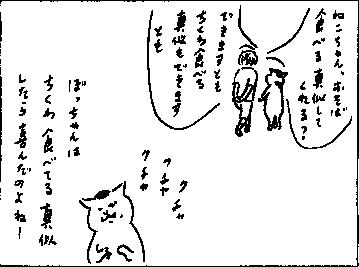 ねこちゃん、おそば
食べる真似して
くれる?
できますとも
ちくわ食べる
真似もできます
とも
クチャ
クチャ
クチャ
ぼっちゃんは
ちくわ食べてる真似
したら喜んだのよねー